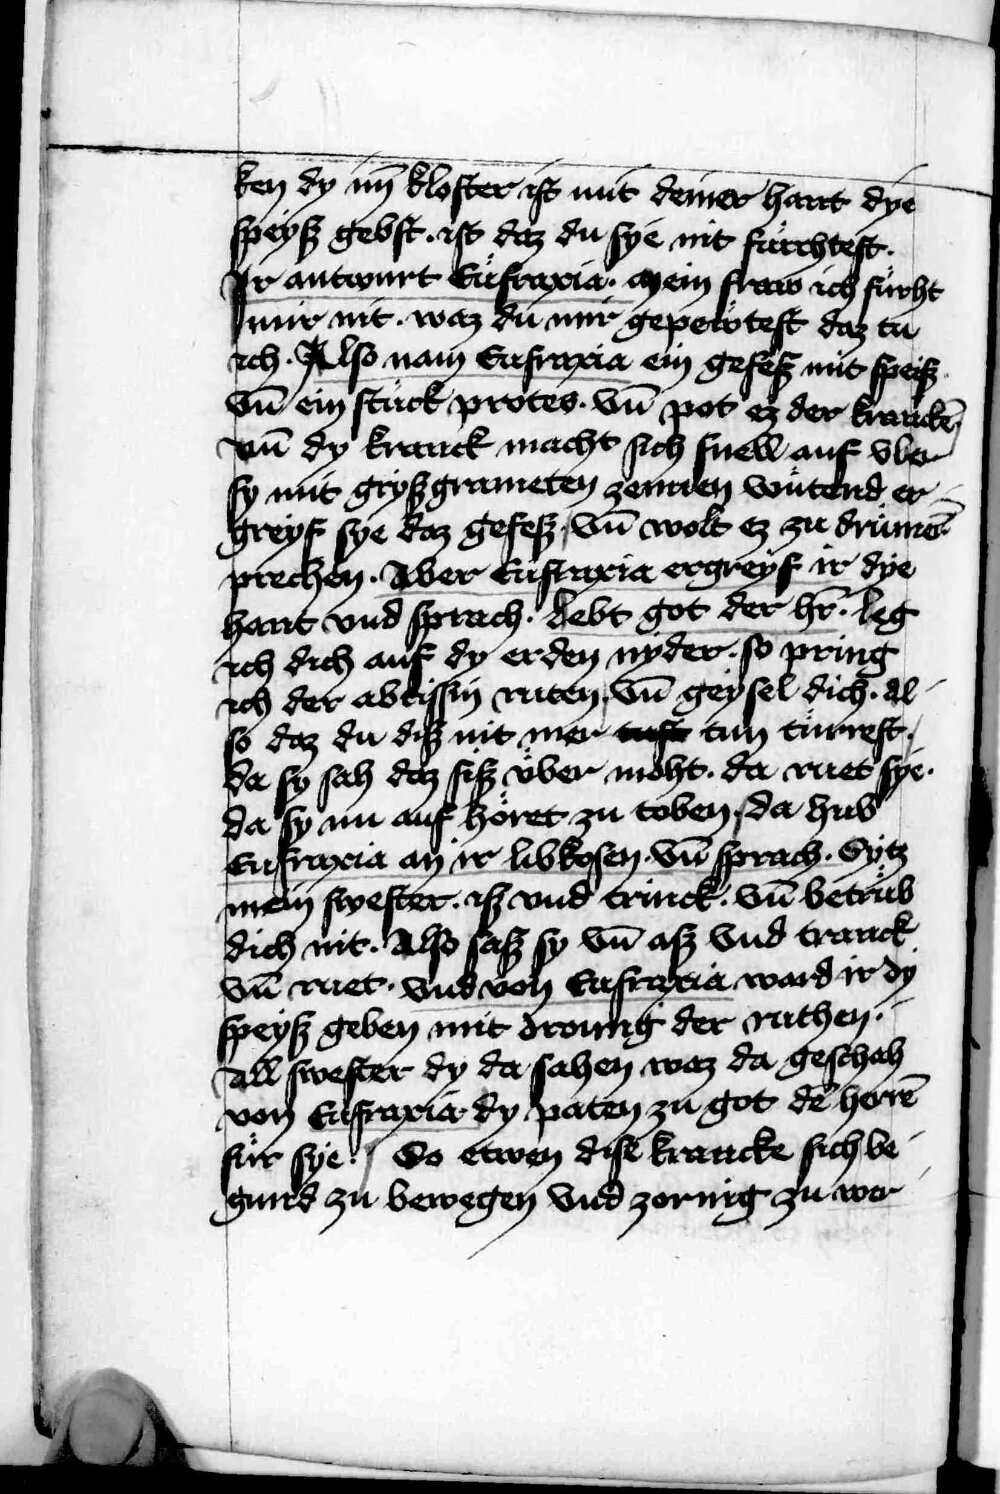 ken dy im̄ kloster ist mit deiner hant dye
speysz gebst. ist daz du sye nit fürchtest.
Ir antwurt Eüfraxia. mein fraw ich fürht
mir nit. waz du mir gepewtest daz tu
ich. Also nam Eufraxia ein gefesz mit speisz.
vn̄ ein stück protes. vn̄ pot ez der kranckē.
vn̄ dy kranck macht sich snell auf vber
sy mit gryszgrameten zennen wütend er-
greyf sye daz gefesz. vn̄ wolt ez zu drümē
prechen. Aber Eufraxia ergreyf ir dye
hant vnd sprach. lebt got der hr̄. leg
ich dich auf dy erden nyder. so pring
ich der abtissin ruten. vn̄ geysel dich. al-
so daz du disz nit mer tun türrest.
da sy sah daz sisz vber moht. da ruet sye.
da sy nu auf höret zu toben. da hub
Eufraxia an ir libkosen. vn̄ sprach. Sytz
mein swester. isz vnd trinck. vn̄ betrüb
dich nit. Also sasz sy vn̄ asz vnd tranck
vn̄ ruet. vnd von Eufraxia ward ir dy
speysz geben mit droung der ruthen.
All swester dy da sahen waz da geschah
von Eufraxia dy paten zu got dē herrē
für sye. So etwen dise krancke sich be-
gund zu bewegen vnd zornig zu wer-